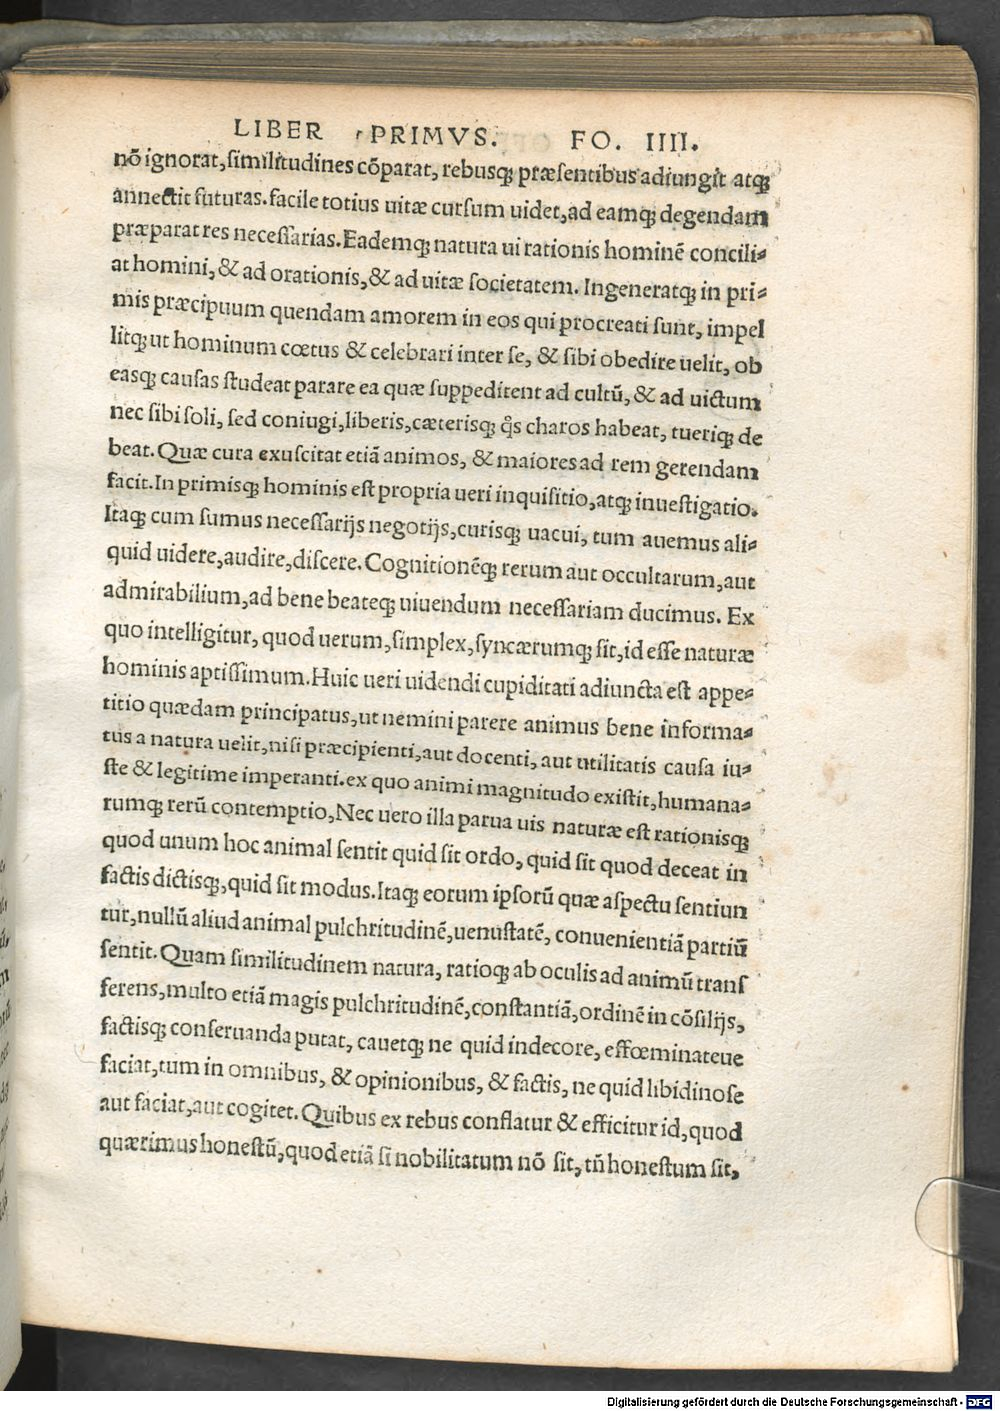 LIBER PRIMVS. FO. IIII.
nō ignorat, ſimilitudines cōparat, rebusq; præſentibus adiungit atq;
annectit futuras. facile totius uitæ curſum uidet, ad eamq; degendam
præparat res neceſſarias. Eademq; natura ui rationis hominē concili-
at homini, & ad orationis, & ad uitæ ſocietatem. Ingeneratq; in pri-
mis præcipuum quendam amorem in eos qui procreati ſunt, impel
litq; ut hominum cœtus & celebrari inter ſe, & ſibi obedire uelit, ob
easq; cauſas ſtudeat parare ea quæ ſuppeditent ad cultū, & ad uictum
nec ſibi ſoli, ſed coniugi, liberis, cæterisq; q̃s charos habeat, tueriq; de
beat. Quæ cura exuſcitat etiā animos, & maiores ad rem gerendam
facit. In primisq; hominis eſt propria ueri inquiſitio, atq; inueſtigatio.
Itaq; cum ſumus neceſſarijs negotijs, curisq; uacui, tum auemus ali-
quid uidere, audire, diſcere. Cognitionēq; rerum aut occultarum, aut
admirabilium, ad bene beateq; uiuendum neceſſariam ducimus. Ex
quo intelligitur, quod uerum, ſimplex, ſyncærumq; ſit, id eſſe naturæ
hominis aptiſſimum. Huic ueri uidendi cupiditati adiuncta eſt appe-
titio quædam principatus, ut nemini parere animus bene informa-
tus a natura uelit, niſi præcipienti, aut docenti, aut utilitatis cauſa iu-
ſte & legitime imperanti. ex quo animi magnitudo exiſtit, humana-
rumq; rerū contemptio, Nec uero illa parua uis naturæ eſt rationisq;
quod unum hoc animal ſentit quid ſit ordo, quid ſit quod deceat in
factis dictisq;, quid ſit modus. Itaq; eorum ipſorū quæ aſpectu ſentiun
tur, nullū aliud animal pulchritudinē, uenuſtatē, conuenientiā partiū
ſentit. Quam ſimilitudinem natura, ratioq; ab oculis ad animū tranſ
ferens, multo etiā magis pulchritudinē, conſtantiā, ordinē in cōſilijs,
factisq; conſeruanda putat, cauetq; ne quid indecore, effœminateue
faciat, tum in omnibus, & opinionibus, & factis, ne quid libidinoſe
aut faciat, aut cogitet. Quibus ex rebus conflatur & efficitur id, quod
quærimus honeſtū, quod etiā ſi nobilitatum nō ſit, tñ honeſtum ſit,
Digitalisierung gefördert durch die Deutsche Forschungsgemeinschaft - DFG